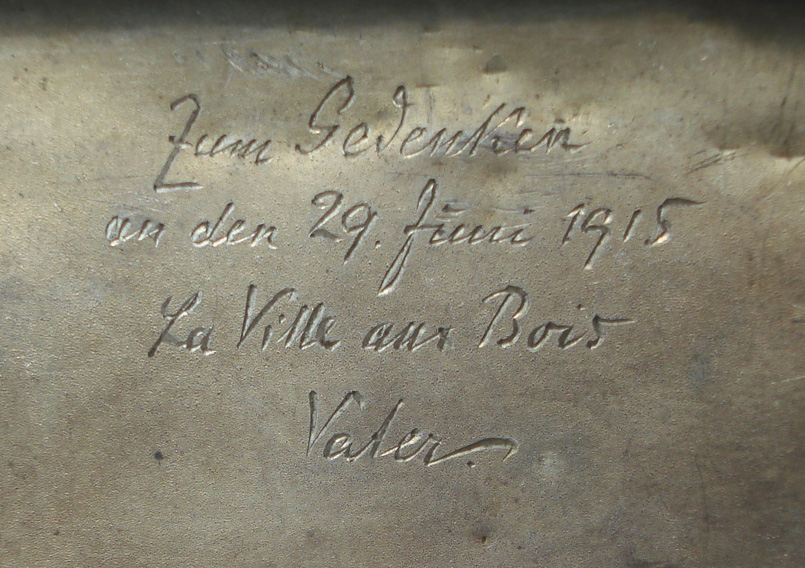 Zum Gedenken
an den 29. Juni 1915
La Ville aux Bois
Vater.